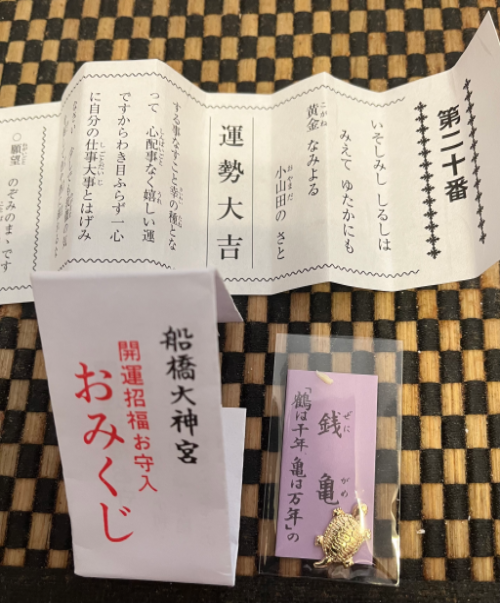 第二十番
いそしみし しるしは
みえて ゆたかにも
黄金 なみよる
こがね
小山田の さと
おやまだ
運勢大吉
する事なすこと幸の種とな
って 心配事なく嬉しい運
しんぱいごと うれ
ですからわき目ふらず一心
に自分の仕事大事とはげみ
しごとだいじ
なさい
○願望 のぞみのまゝです
船橋大神宮
開運招福お守入
おみくじ
銭亀
ぜに がめ
「鶴は千年 亀は万年」の